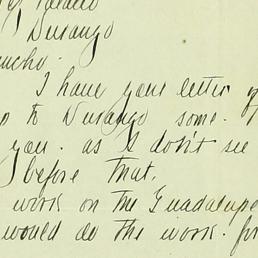 Durango
I have your letter
to Durango some.
you. as I don't see
before that.
work on the Guadalupe
would do the work. for